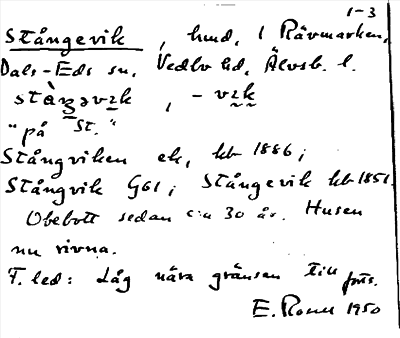 1-3
Stångevik, hmd, i Rävmarken,
Dals-Eds sn, Vedbo hd, Älvsb. l.
stàŋəvɪk, -vɪk
"på St."
Stångviken ek, kb 1886;
Stångvik G61; Stångevik kb 1851.
Obebott sedan c:a 30 år. Husen
nu rivna.
F. led: Låg nära gränsen till
E. Rosell 1950